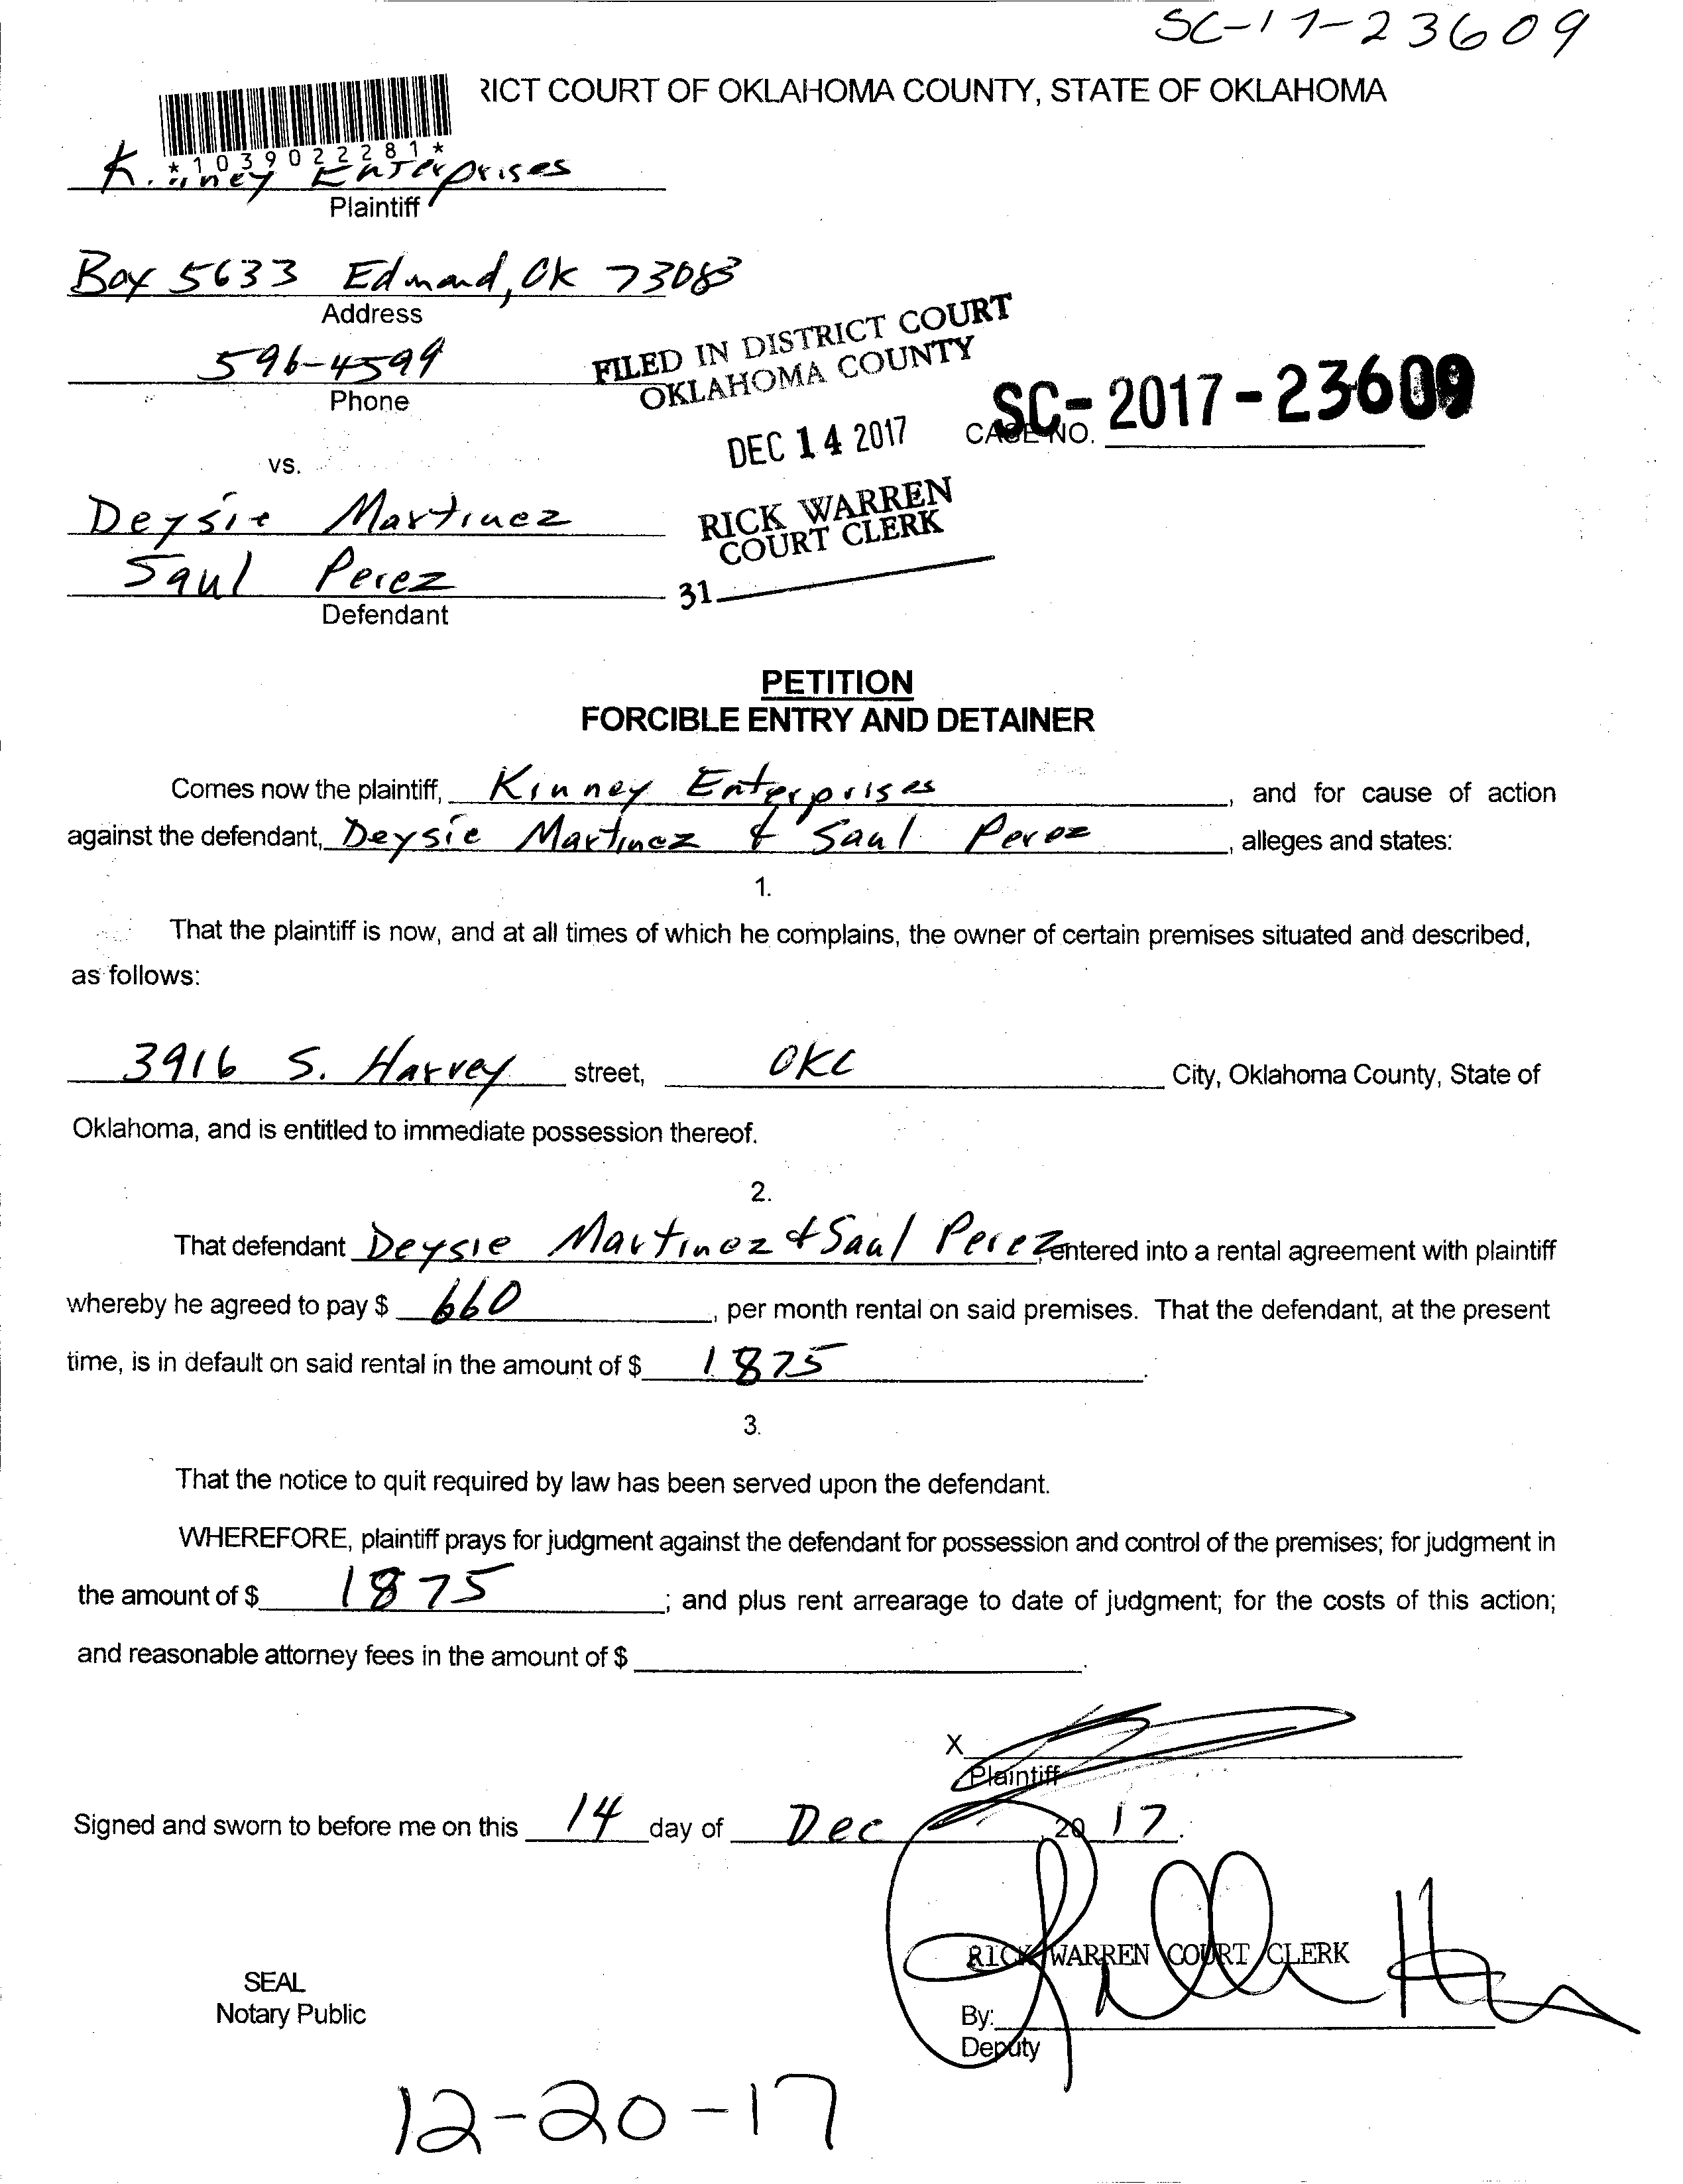 SC-17-23609
RICT COURT OF OKLAHOMA COUNTY, STATE OF OKLAHOMA
*1039022281*
Kinney Enterprises
Plaintiff
Box 5633 Edmond, OK 73083
Address
596-4599
Phone
FILED IN DISTRICT COURT
OKLAHOMA COUNTY
DEC 14 2017
CASE NO. SC-2017-23609
vs.
RICK WARREN
COURT CLERK
31
Deysie Martinez
Saul Perez
Defendant
PETITION
FORCIBLE ENTRY AND DETAINER
Comes now the plaintiff, Kinney Enterprises, and for cause of action
against the defendant, Deysie Martinez & Saul Perez, alleges and states:
1.
That the plaintiff is now, and at all times of which he complains, the owner of certain premises situated and described,
as follows:
3916 S. Harvey street, OKC City, Oklahoma County, State of
Oklahoma, and is entitled to immediate possession thereof.
2.
That defendant Deysie Martinez & Saul Perez, entered into a rental agreement with plaintiff
whereby he agreed to pay $ 660, per month rental on said premises. That the defendant, at the present
time, is in default on said rental in the amount of $ 1875.
3.
That the notice to quit required by law has been served upon the defendant.
WHEREFORE, plaintiff prays for judgment against the defendant for possession and control of the premises; for judgment in
the amount of $ 1875; and plus rent arrearage to date of judgment; for the costs of this action;
and reasonable attorney fees in the amount of $ .
X
Plaintiff
Signed and sworn to before me on this 14 day of Dec, 20 17.
RICK WARREN COURT CLERK
SEAL
Notary Public
By:
Deputy
12-20-17